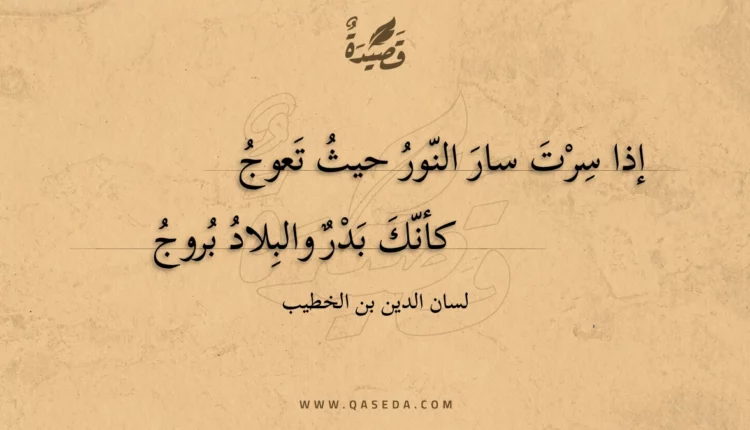 قَصِيْدَةٌ
إذا سِرْتَ سارَ النّورُ حيثُ تَعوجُ
كأنّكَ بَدْرٌ والبِلادُ بُروجُ
لسان الدين بن الخطيب
WWW.QASEDA.COM